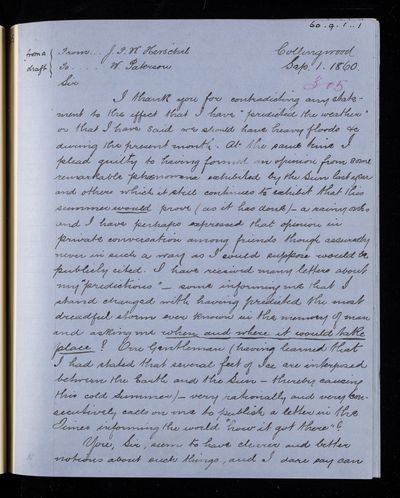 60.9.1..1
from a draft
From... J. F. W. Herschel
To..... W. Paterson
Collingwood
Sep. 1. 1860.
305
Sir
I thank you for contradicting any state-
ment to the effect that I have "predicted the weather"
or that I have said we should have heavy floods &c
during the present month. At the same time I
plead guilty to having formed an opinion from some
remarkable phænomena exhibited by the Sun last year
and others which it still continues to exhibit that this
summer would prove (as it has done) – a rainy one
and I have perhaps expressed that opinion in
private conversation among friends though assuredly
never in such a way as I could suppose would be
publicly cited. I have received many letters about
my "predictions" – some informing me that I
stand charged with having predicted the most
dreadful storm ever known in the memory of man
and asking me when and where it would take
place? One Gentleman (having learned that
I had stated that several feet of Ice are interposed
between the Earth and the Sun – thereby causing
this cold Summer) – very rationally and very con-
secutively calls on me to publish a letter in the
Times informing the world "how it got there"?
You, Sir, seem to have clearer and better
notions about such things, and I dare say can